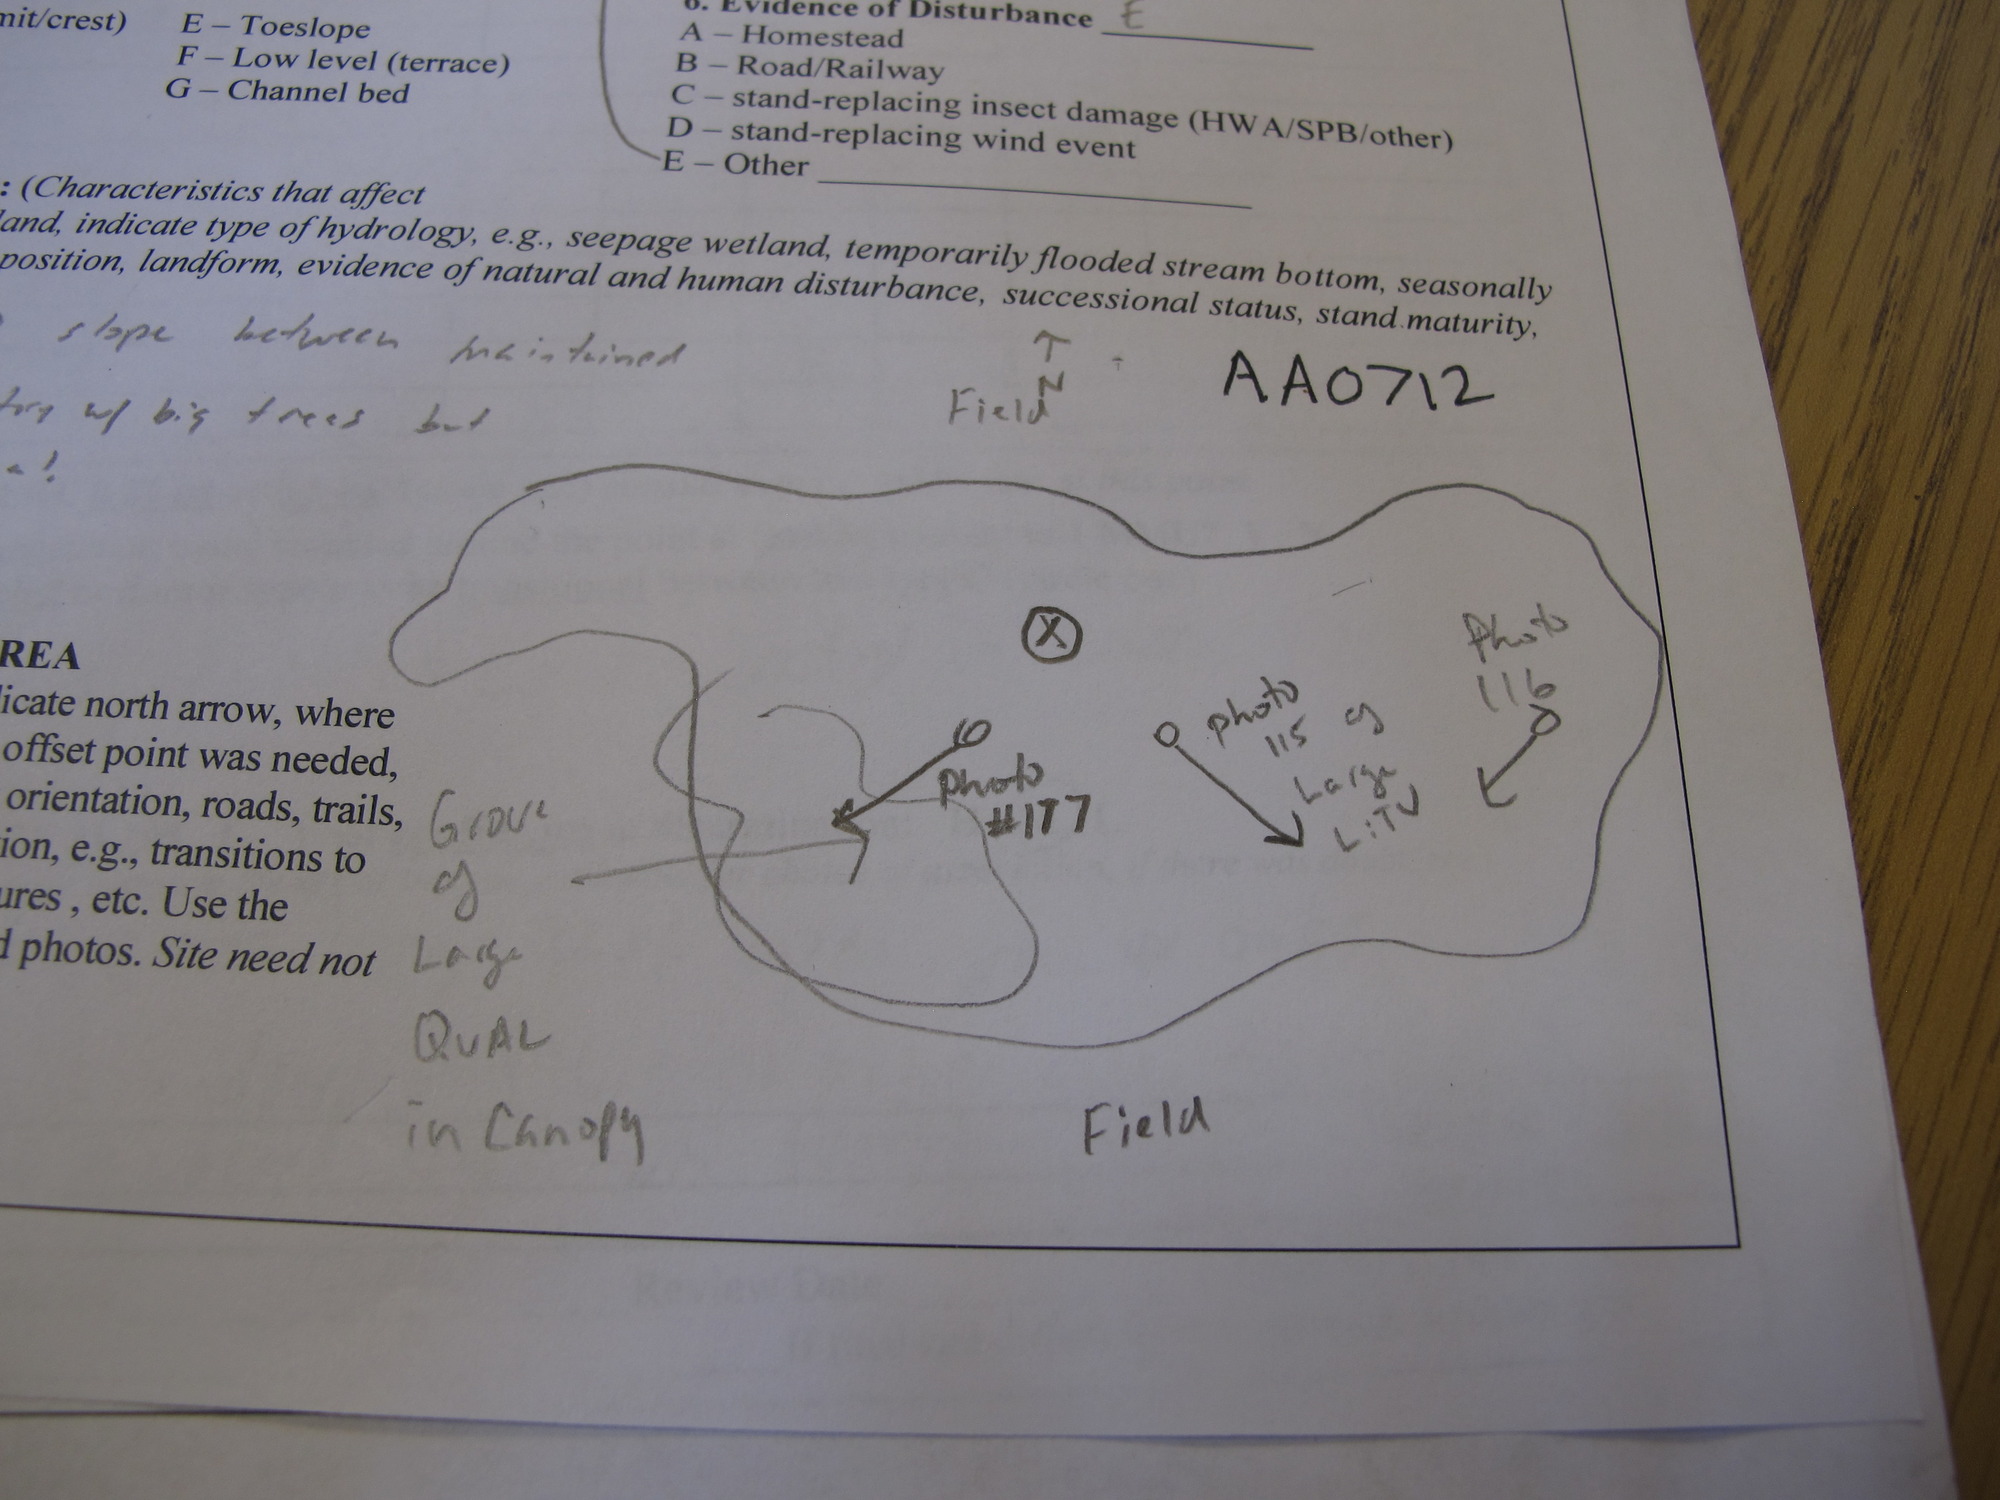 mit/crest)
E – Toeslope
F – Low level (terrace)
G – Channel bed
6. Evidence of Disturbance E
A – Homestead
B – Road/Railway
C – stand-replacing insect damage (HWA/SPB/other)
D – stand-replacing wind event
E – Other
: (Characteristics that affect
land, indicate type of hydrology, e.g., seepage wetland, temporarily flooded stream bottom, seasonally
position, landform, evidence of natural and human disturbance, successional status, stand maturity,
slope between maintained
w/ big trees but
N
Field
AA0712
X
Photo
116
photo
115 of
Large
LiTU
photo
#177
REA
licate north arrow, where
offset point was needed,
orientation, roads, trails,
ion, e.g., transitions to
ures , etc. Use the
d photos. Site need not
Grove
of
Large
QUAL
in Canopy
Field
Review Date